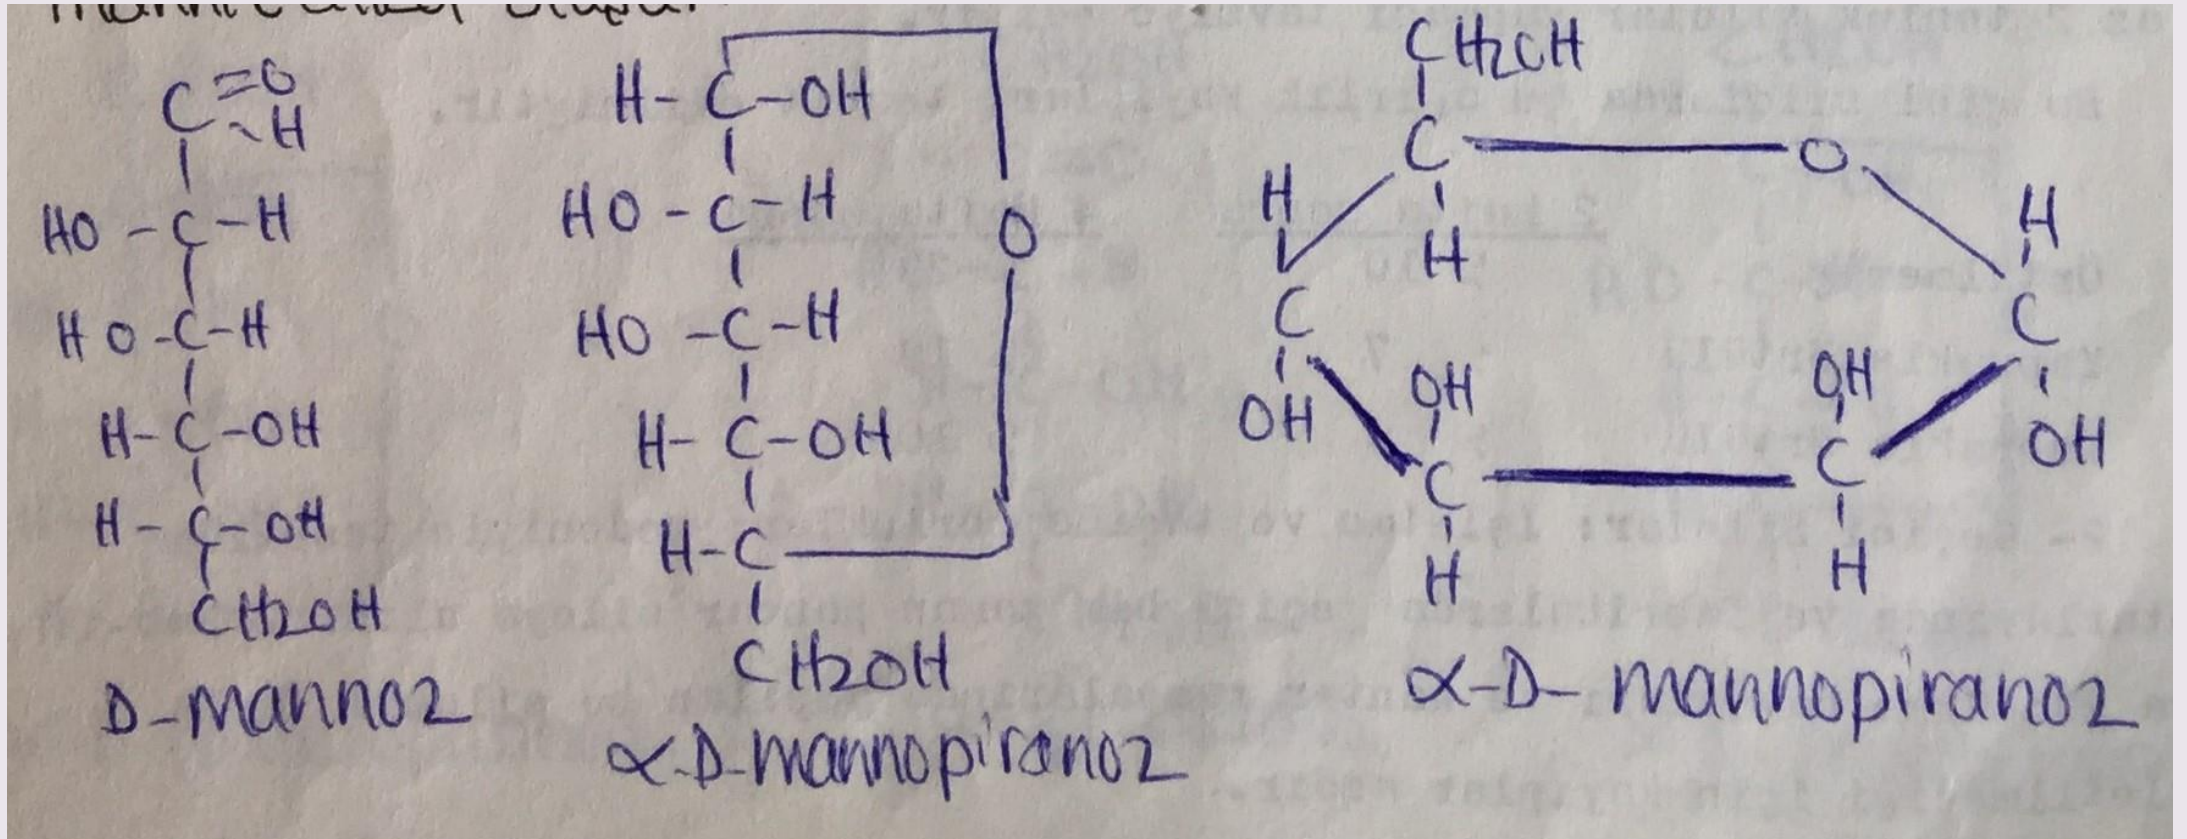 C=O
-H
HO-C-H
HO-C-H
H-C-OH
H-C-OH
CH2OH
D-mannoz
H-C-OH
HO-C-H
O
HO-C-H
H-C-OH
H-C
CH2OH
α-D-mannopiranoz
CH2CH
C O
H H H
C C
OH OH OH OH
C C
H H
α-D-mannopiranoz